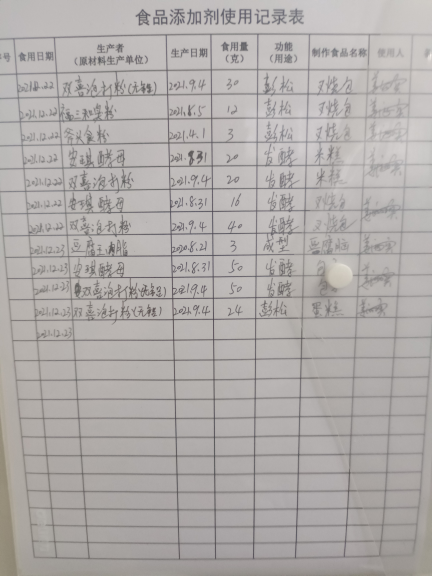 食品添加剂使用记录表
序号 食用日期 生产者（原材料生产单位） 生产日期 食用量（克） 功能（用途） 制作食品名称 使用人
2021.12.22 双喜泡打粉(无铝) 2021.9.4 30 彭松 叉烧包
2021.12.22 2021.8.5 12 彭松 叉烧包
2021.12.22 食粉 2021.4.1 3 彭松 叉烧包
2021.12.22 安琪酵母 2021.8.31 20 发酵 米糕
2021.12.22 双喜泡打粉 2021.9.4 20 发酵 米糕
2021.12.22 安琪酵母 2021.8.31 16 发酵 叉烧包
2021.12.22 双喜泡打粉 2021.9.4 40 发酵 叉烧包
2021.12.23 豆腐王 内脂 2020.8.21 3 成型 豆腐脑
2021.12.23 安琪酵母 2021.8.31 50 发酵
2021.12.23 双喜泡打粉(无铝) 2021.9.4 50 发酵
2021.12.23 双喜泡打粉(无铝) 2021.9.4 24 彭松 蛋糕
2021.12.23